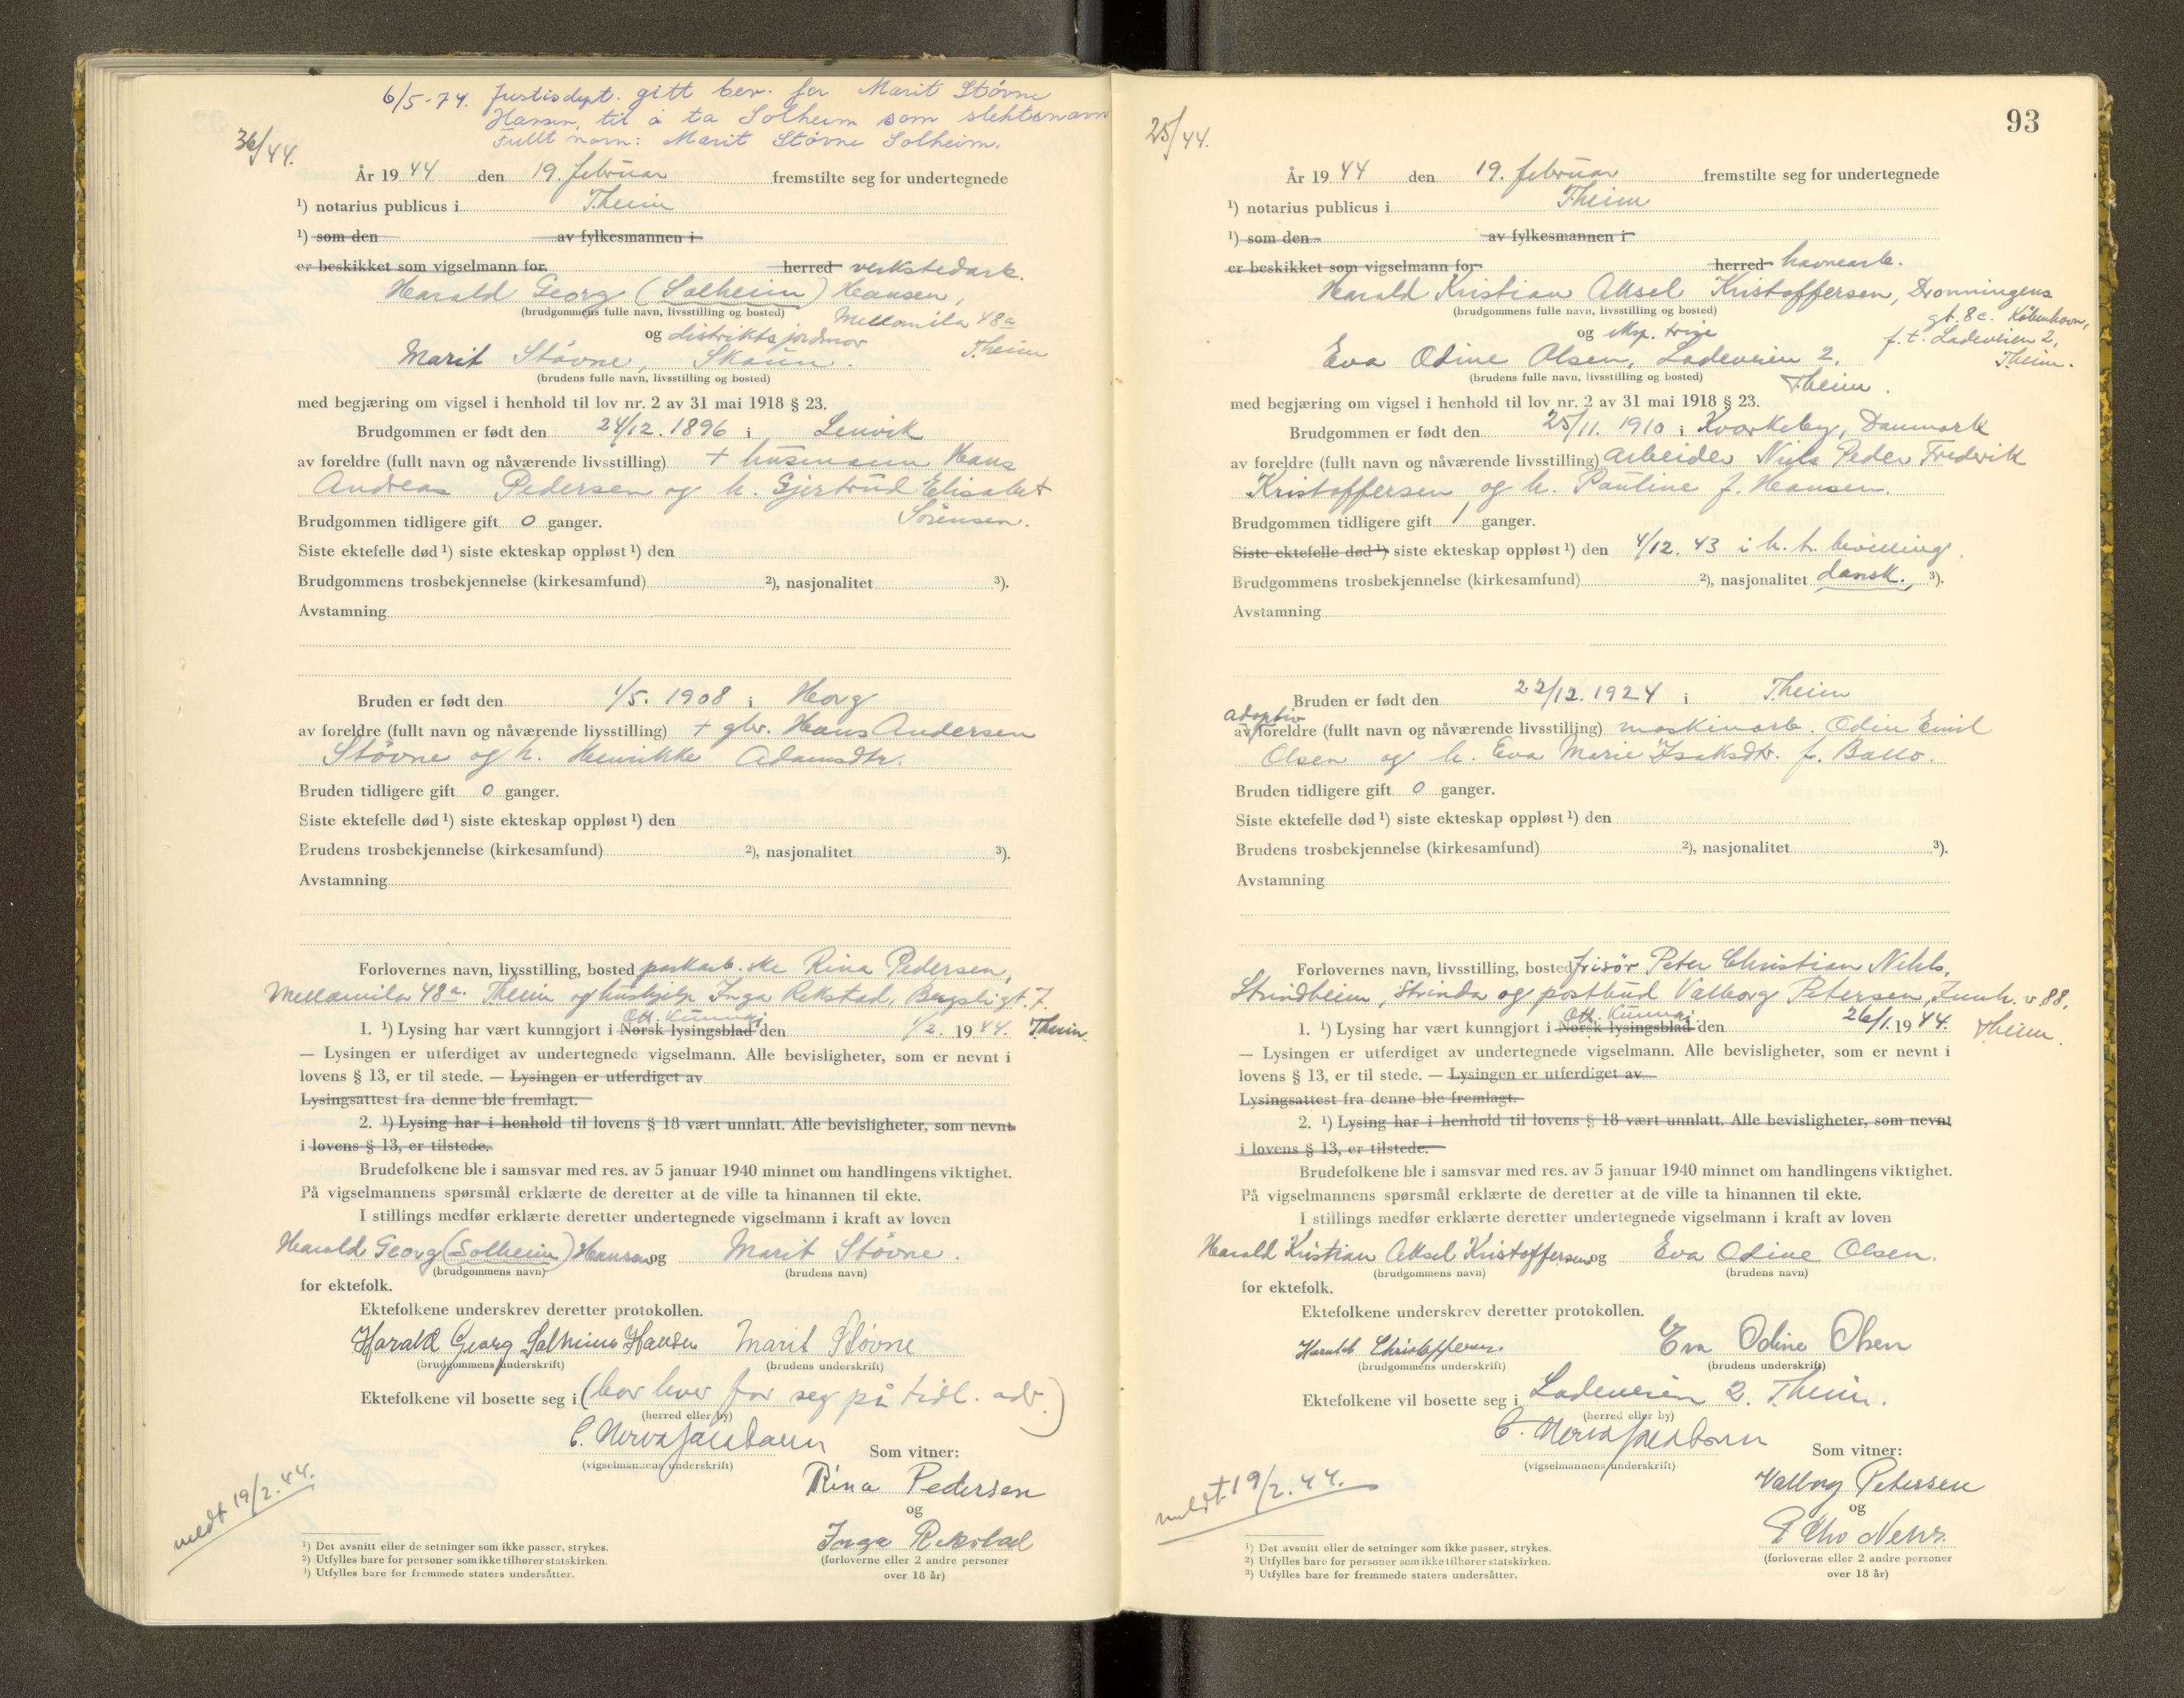 6/5-74. Justisdept. gitt bev. for Marit Støvne
Hansen, til å ta Solheim som slektsnavn
Fullt navn: Marit Støvne Solheim.
36/44.
År 1944 den 19. februar fremstilte seg for undertegnede
¹) notarius publicus i Theim
¹) som den av fylkesmannen i
er beskikket som vigselmann for herred verkstedarb.
Harald Georg (Solheim) Hansen,
(brudgommens fulle navn, livsstilling og bosted) Mellomila 48a
og distriktsjordmor Theim
Marit Støvne, Skaun.
(brudens fulle navn, livsstilling og bosted)
med begjæring om vigsel i henhold til lov nr. 2 av 31 mai 1918 § 23.
Brudgommen er født den 24/12. 1896 i Lenvik
av foreldre (fullt navn og nåværende livsstilling) + husmann Hans
Andreas Pedersen og h. Gjertrud Elisabet
Sørensen.
Brudgommen tidligere gift 0 ganger.
Siste ektefelle død ¹) siste ekteskap oppløst ¹) den
Brudgommens trosbekjennelse (kirkesamfund) ²), nasjonalitet ³).
Avstamning
Bruden er født den 1/5. 1908 i Horg
av foreldre (fullt navn og nåværende livsstilling) + gbr. Hans Andersen
Støvne og h. Henrikke Adamsdtr.
Bruden tidligere gift 0 ganger.
Siste ektefelle død ¹) siste ekteskap oppløst ¹) den
Brudens trosbekjennelse (kirkesamfund) ²), nasjonalitet ³).
Avstamning
Forlovernes navn, livsstilling, bosted parkarb.ske Rina Pedersen,
Mellomila 48a. Theim og hushjelp Inga Rekstad, Bergsligt. 7.
Off. kunngj.
1. ¹) Lysing har vært kunngjort i Norsk lysingsblad den 1/2. 1944. Theim.
— Lysingen er utferdiget av undertegnede vigselmann. Alle bevisligheter, som er nevnt i
lovens § 13, er til stede. — Lysingen er utferdiget av
Lysingsattest fra denne ble fremlagt.
2. ¹) Lysing har i henhold til lovens § 18 vært unnlatt. Alle bevisligheter, som nevnt
i lovens § 13, er tilstede.
Brudefolkene ble i samsvar med res. av 5 januar 1940 minnet om handlingens viktighet.
På vigselmannens spørsmål erklærte de deretter at de ville ta hinannen til ekte.
I stillings medfør erklærte deretter undertegnede vigselmann i kraft av loven
Harald Georg (Solheim) Hansen og Marit Støvne.
(brudgommens navn) (brudens navn)
for ektefolk.
Ektefolkene underskrev deretter protokollen.
Harald Georg Solheim Hansen Marit Støvne
(brudgommens underskrift) (brudens underskrift)
Ektefolkene vil bosette seg i (bor hver for seg på tidl. adr.)
(herred eller by)
(vigselmannens underskrift) Som vitner:
Rina Pedersen
og
Inga Rekstad
(forloverne eller 2 andre personer
over 18 år)
meldt 19/2. 44.
¹) Det avsnitt eller de setninger som ikke passer, strykes.
²) Utfylles bare for personer som ikke tilhører statskirken.
³) Utfylles bare for fremmede staters undersåtter.
93
25/44.
År 1944 den 19. februar fremstilte seg for undertegnede
¹) notarius publicus i Theim
¹) som den av fylkesmannen i
er beskikket som vigselmann for herred havnearb.
Harald Kristian Aksel Kristoffersen, Dronningens
(brudgommens fulle navn, livsstilling og bosted) gt. 8c. København,
og eksp. trise f. t. Ladeveien 2,
Eva Odine Olsen, Ladeveien 2. Theim.
(brudens fulle navn, livsstilling og bosted) Theim.
med begjæring om vigsel i henhold til lov nr. 2 av 31 mai 1918 § 23.
Brudgommen er født den 25/11. 1910 i Kværkeby, Danmark
av foreldre (fullt navn og nåværende livsstilling) arbeider Niels Peder Frederik
Kristoffersen og h. Pauline f. Hansen.
Brudgommen tidligere gift 1 ganger.
Siste ektefelle død ¹) siste ekteskap oppløst ¹) den 4/12. 43 i h. t. bevilling.
Brudgommens trosbekjennelse (kirkesamfund) ²), nasjonalitet dansk. ³).
Avstamning
Bruden er født den 22/12. 1924 i Theim
adoptiv
av foreldre (fullt navn og nåværende livsstilling) maskinarb. Odin Emil
Olsen og h. Eva Marie Isaksdtr. f. Ballo.
Bruden tidligere gift 0 ganger.
Siste ektefelle død ¹) siste ekteskap oppløst ¹) den
Brudens trosbekjennelse (kirkesamfund) ²), nasjonalitet ³).
Avstamning
Forlovernes navn, livsstilling, bosted frisør Peter Christian Nehls,
Strindheim, Strinda og postbud Valborg Petersen, Innh. v. 88,
Off. kunngj.
1. ¹) Lysing har vært kunngjort i Norsk lysingsblad den 26/1. 1944. Theim.
— Lysingen er utferdiget av undertegnede vigselmann. Alle bevisligheter, som er nevnt i
lovens § 13, er til stede. — Lysingen er utferdiget av
Lysingsattest fra denne ble fremlagt.
2. ¹) Lysing har i henhold til lovens § 18 vært unnlatt. Alle bevisligheter, som nevnt
i lovens § 13, er tilstede.
Brudefolkene ble i samsvar med res. av 5 januar 1940 minnet om handlingens viktighet.
På vigselmannens spørsmål erklærte de deretter at de ville ta hinannen til ekte.
I stillings medfør erklærte deretter undertegnede vigselmann i kraft av loven
Harald Kristian Aksel Kristoffersen og Eva Odine Olsen.
(brudgommens navn) (brudens navn)
for ektefolk.
Ektefolkene underskrev deretter protokollen.
Harald Christoffersen Eva Odine Olsen
(brudgommens underskrift) (brudens underskrift)
Ektefolkene vil bosette seg i Ladeveien 2. Theim.
(herred eller by)
(vigselmannens underskrift) Som vitner:
Valborg Petersen
og
(forloverne eller 2 andre personer
over 18 år)
meldt 19/2. 44.
¹) Det avsnitt eller de setninger som ikke passer, strykes.
²) Utfylles bare for personer som ikke tilhører statskirken.
³) Utfylles bare for fremmede staters undersåtter.